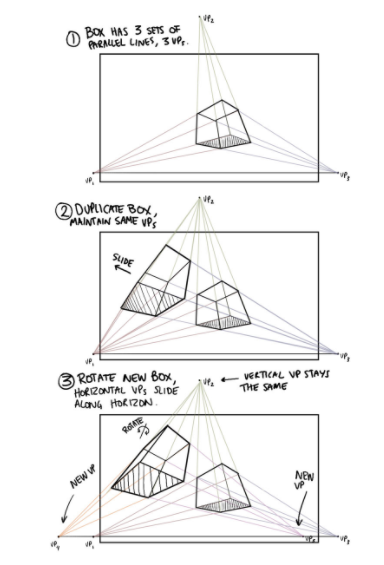 ① BOX HAS 3 SETS OF
PARALLEL LINES, 3 VPs.
VP₂
VP₁
VP₃
② DUPLICATE BOX,
MAINTAIN SAME VPs
VP₂
SLIDE
VP₁
VP₃
③ ROTATE NEW BOX,
HORIZONTAL VPs SLIDE
ALONG HORIZON.
VP₂
VERTICAL VP STAYS
THE SAME
ROTATE
NEW VP
NEW
VP
VP₄
VP₁
VP₅
VP₃